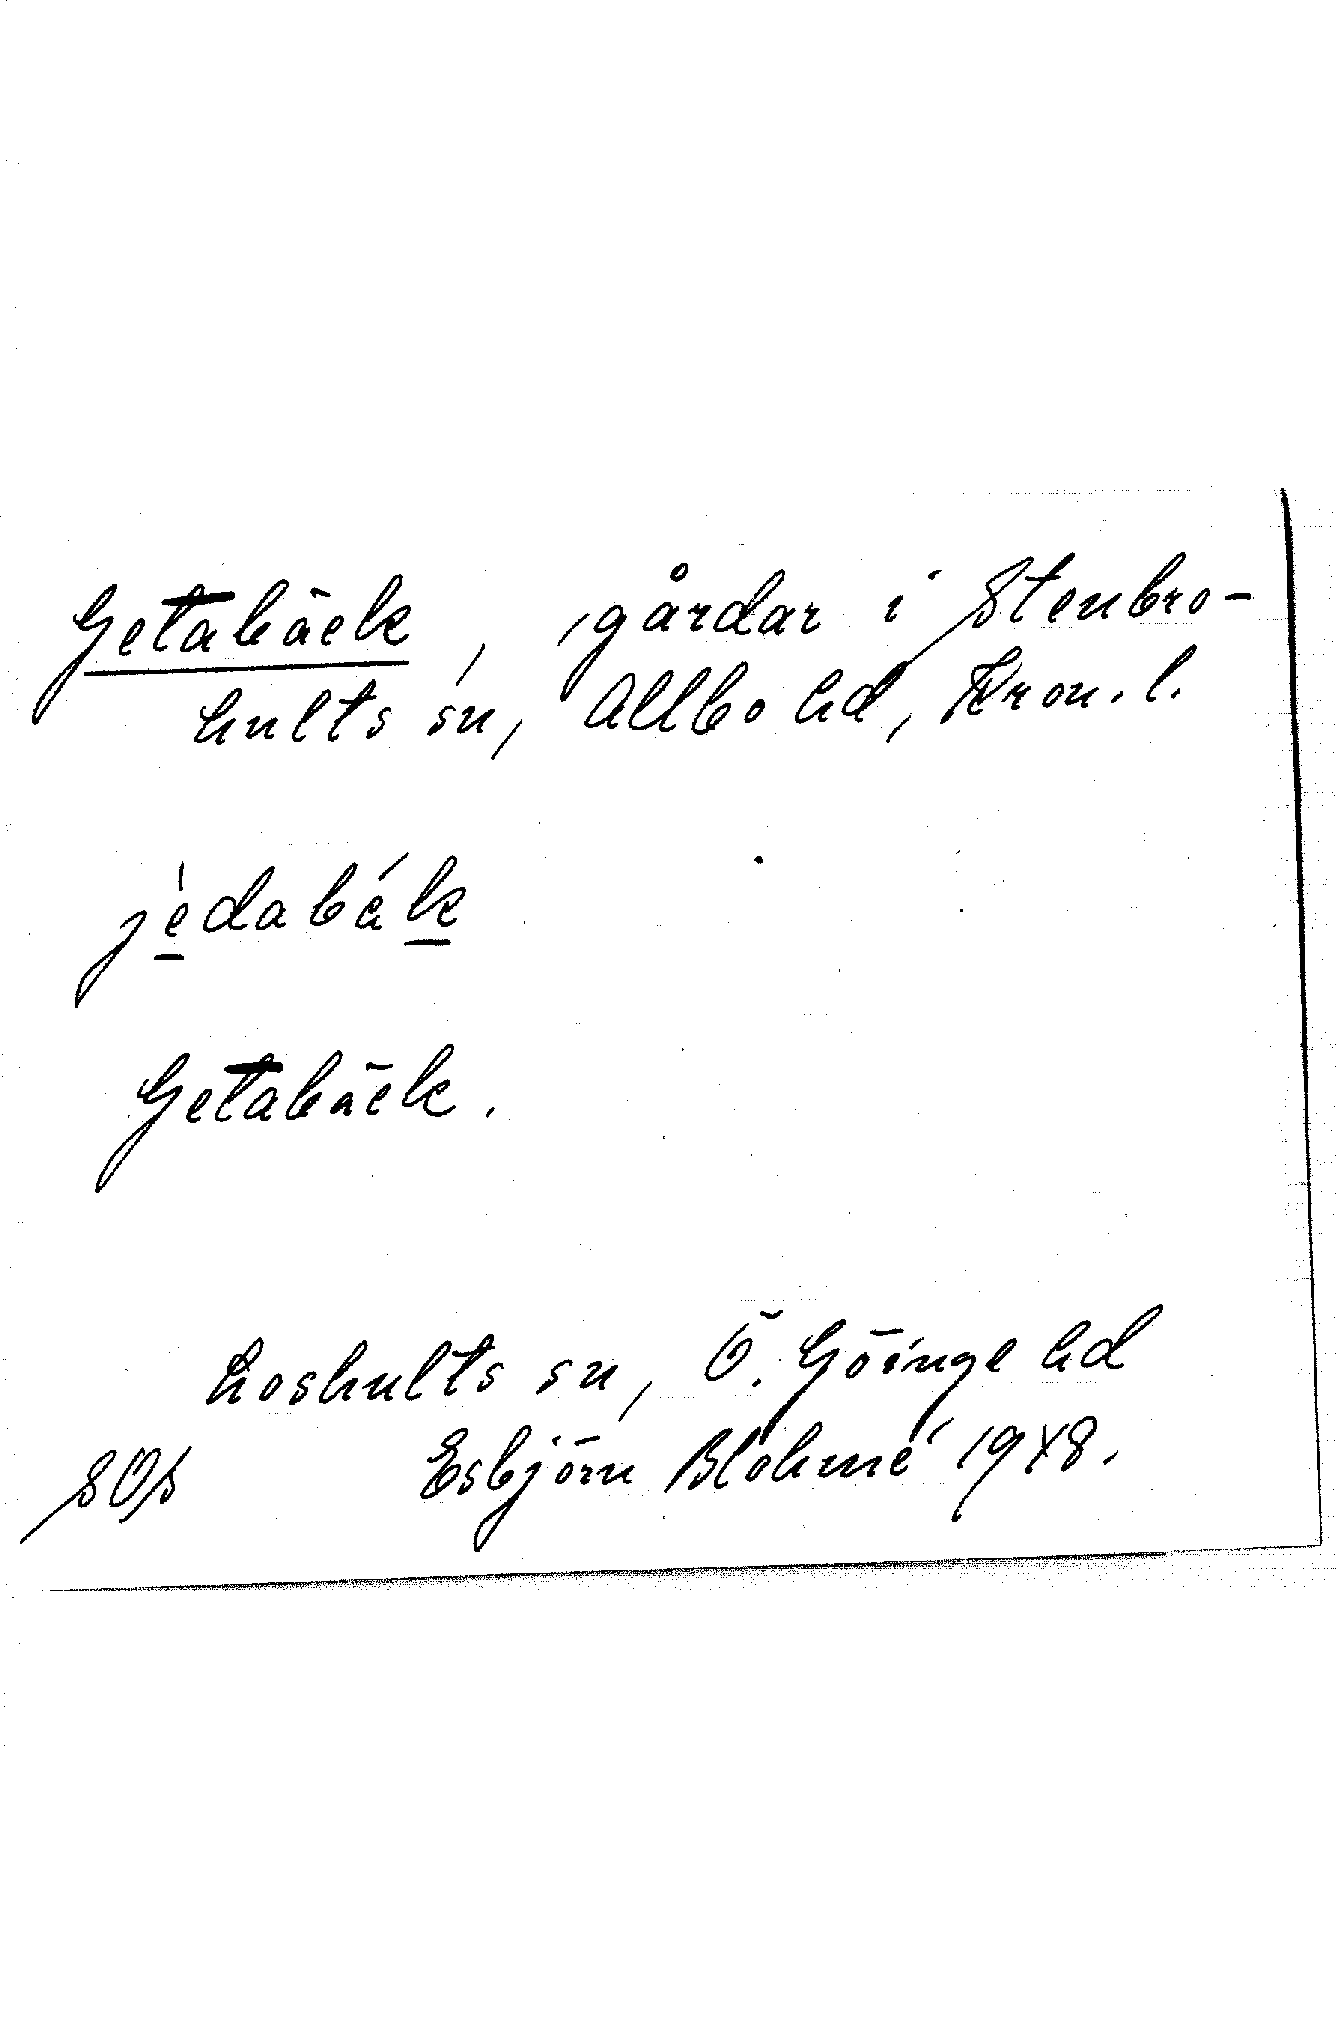 Getabäck, gårdar i Stenbro-
hults sn, Allbo hd, Kron. l.
jèdabák
Getabäck.
Loshults sn, Ö. Göinge hd
SOS Esbjörn Blohmé 1948.